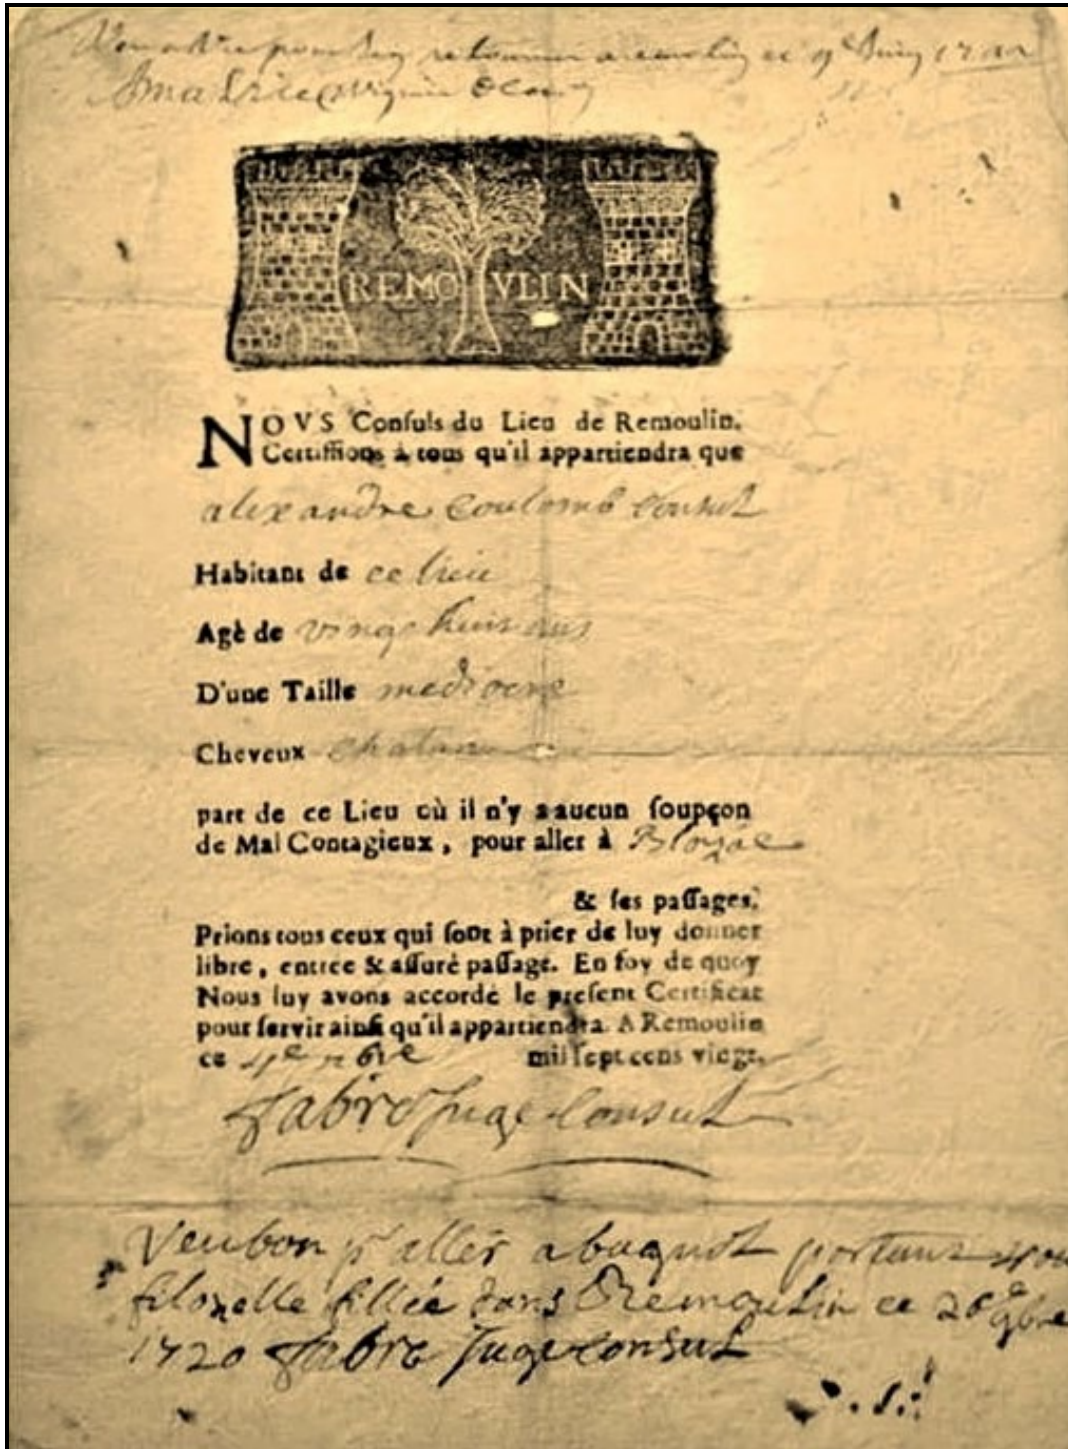 retourner a ce 9e Juin
REMOVLIN
NOVS Conſuls du Lieu de Remoulin.
Certiffions à tous qu'il appartiendra que
alexandre Coulomb Consul
Habitant de ce lieu
Agè de vingt huit ans
D'une Taille mediocre
Cheveux chatan
part de ce Lieu où il n'y a aucun ſoupçon
de Mal Contagieux, pour aller à Blozac
& ſes paſſages.
Prions tous ceux qui ſont à prier de luy donner
libre, entrèe & aſſurè paſſage. En foy de quoy
Nous luy avons accordè le preſent Certificat
pour ſervir ainſi qu'il appartiendra. A Remoulin
ce 4e 7bre mil ſept cens vingt.
fabre Juge Consul
Veu bon pr aller a portant
filozelle fillée dans Remoulin ce 26e 9bre
1720 fabre Juge consul